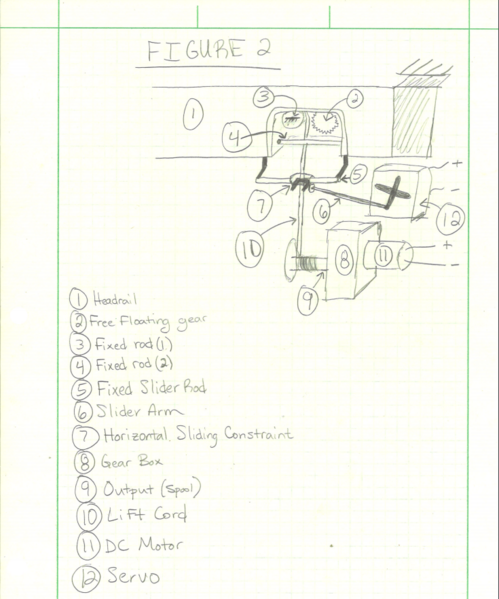 FIGURE 2
1
3
2
4
5
+
-
7
6
12
10
8
11
+
-
9
1 Headrail
2 Free Floating gear
3 Fixed rod (1)
4 Fixed rod (2)
5 Fixed Slider Rod
6 Slider Arm
7 Horizontal Sliding Constraint
8 Gear Box
9 Output (Spool)
10 Lift Cord
11 DC Motor
12 Servo